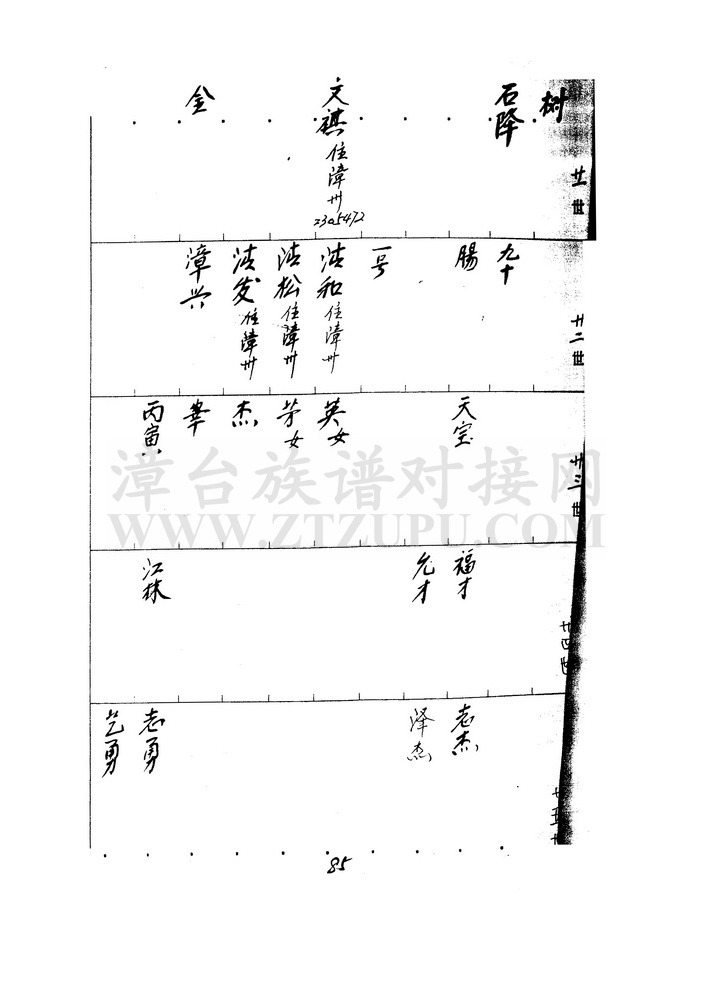 树
石降
文祺 住漳州
2305472
金
廿一世
九十
肠
一号
洁和 住漳州
洁松 住漳州
洁发 住漳州
漳兴
廿二世
天宝
英女
芳女
杰
丙寅
廿三世
福才
允才
江林
廿四世
志杰
泽杰
志勇
艺勇
廿五
85
漳台族谱对接网
WWW.ZTZUPU.COM